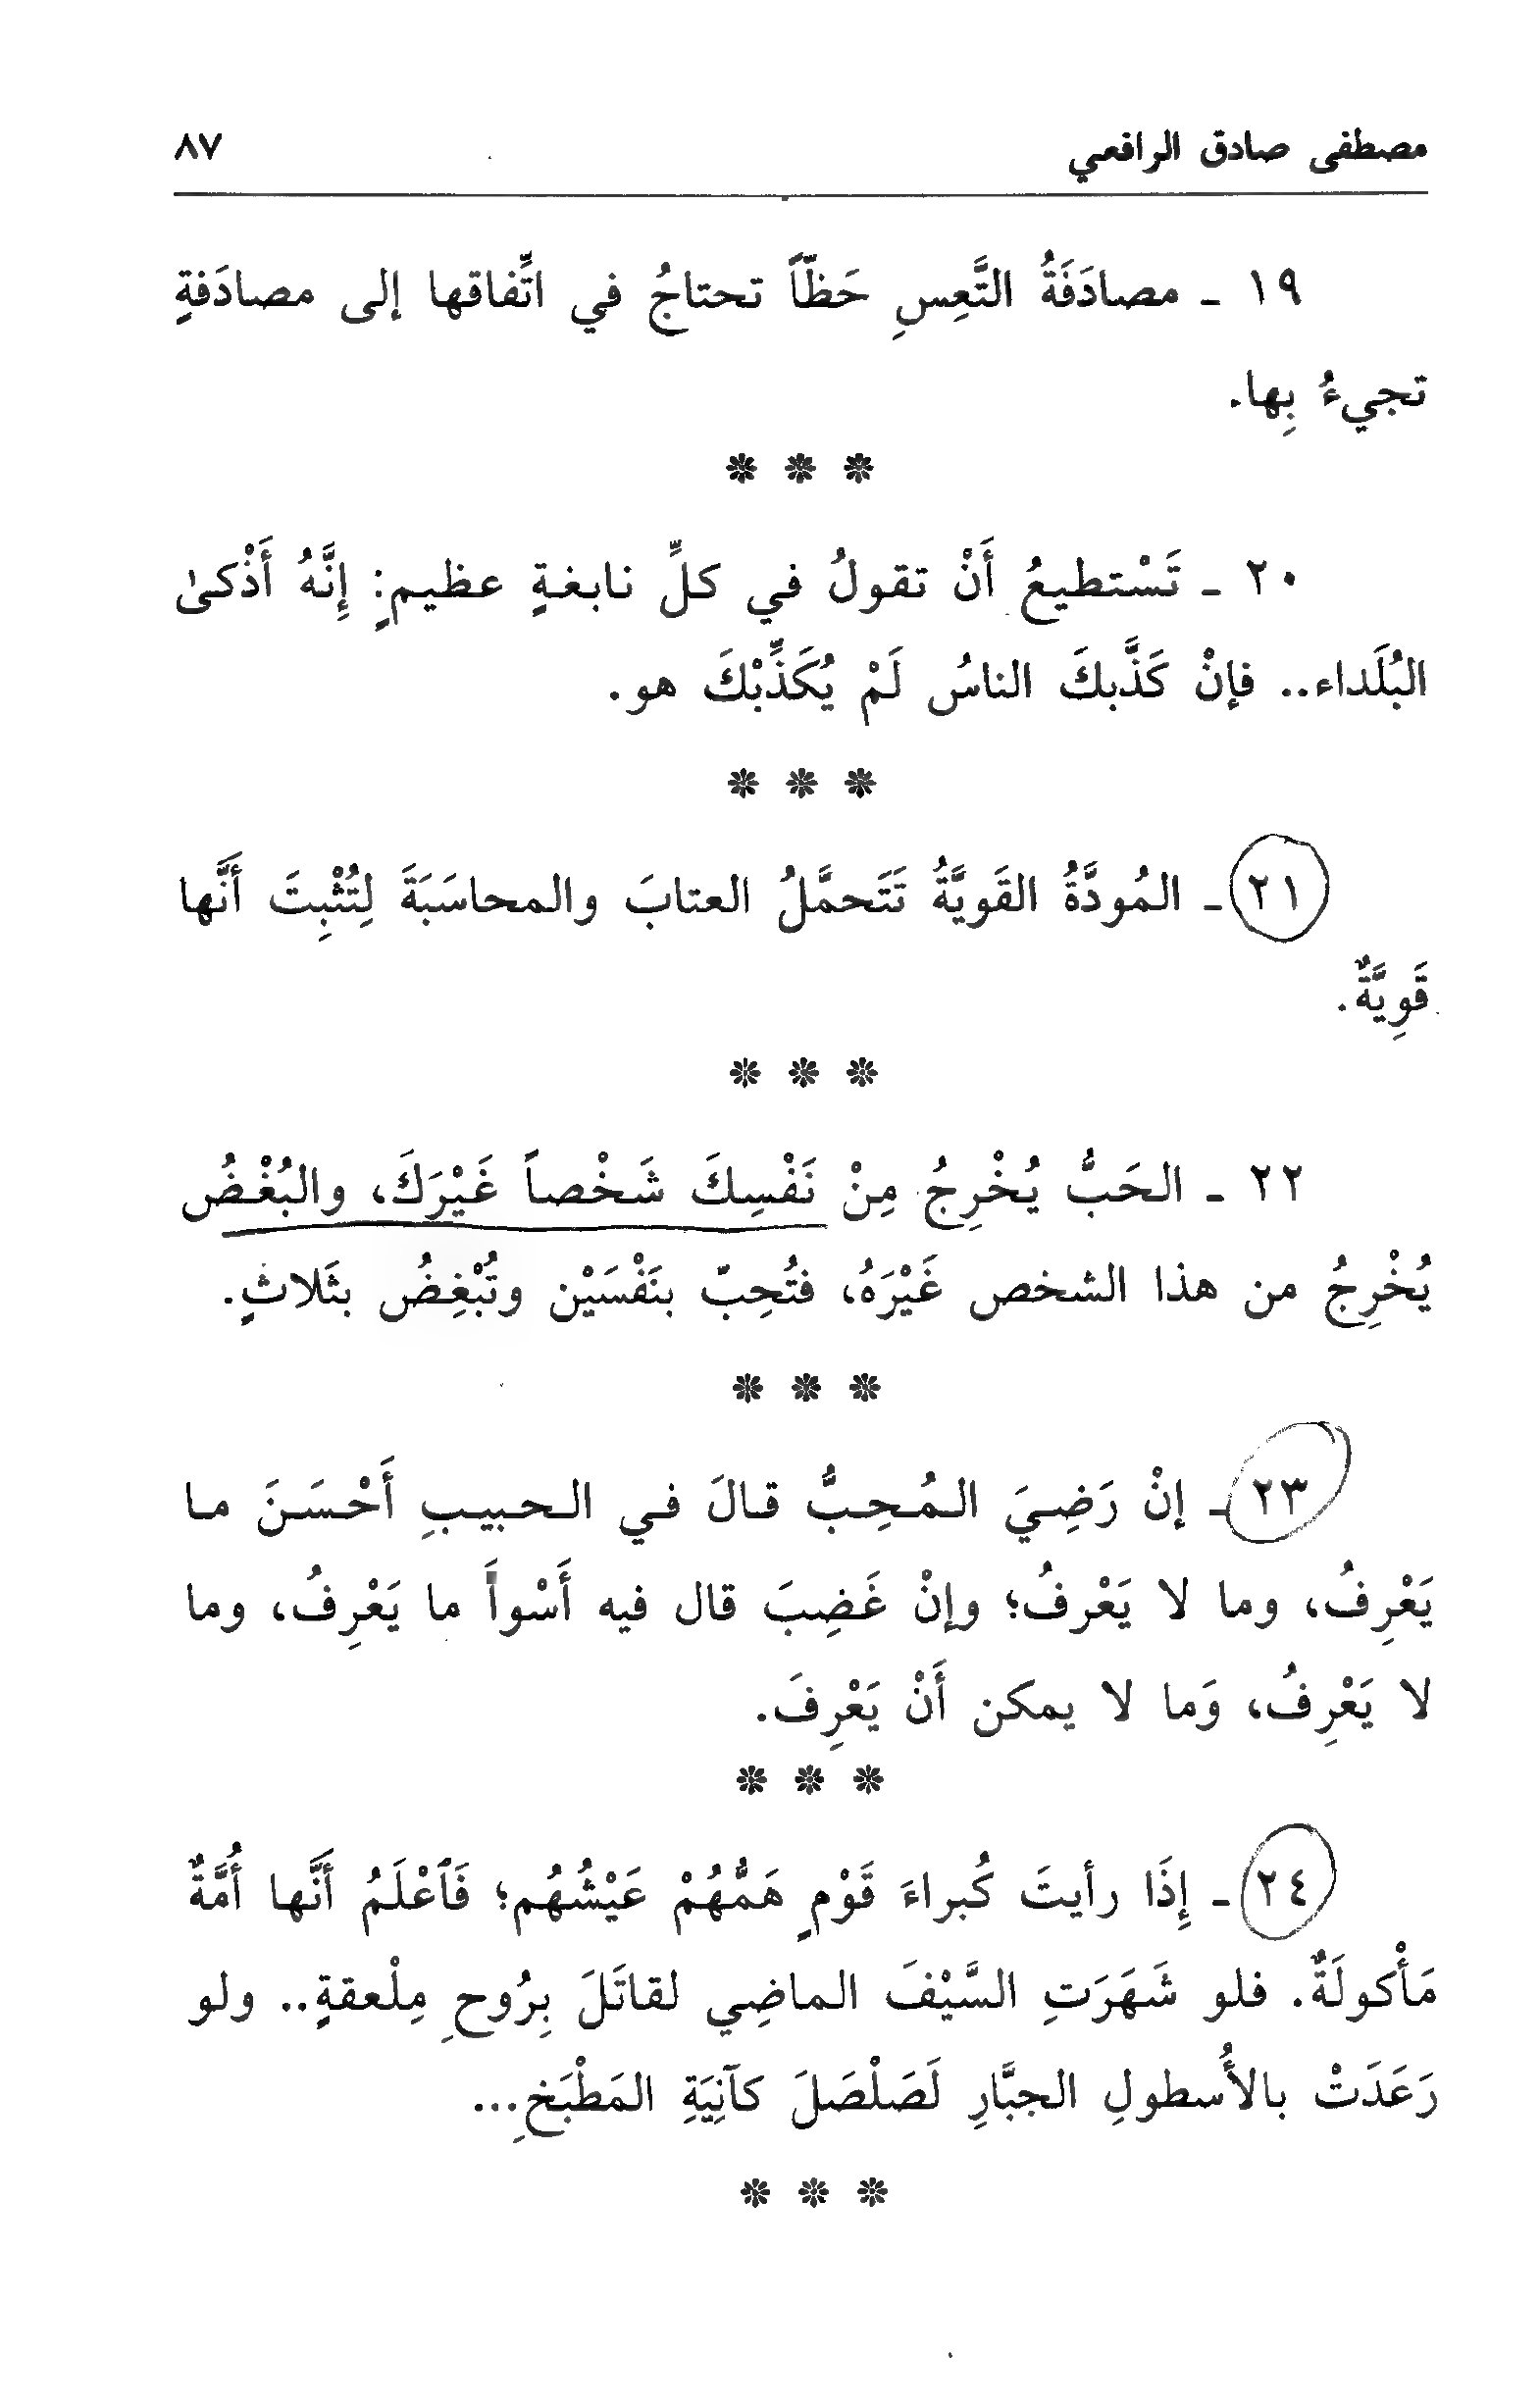 مصطفى صادق الرافعي ٨٧
١٩ ـ مصادَفَةُ التَّعِسِ حَظّاً تحتاجُ في اتِّفاقها إلى مصادَفةٍ
تجيءُ بِها.
* * *
٢٠ ـ تَسْتطيعُ أَنْ تقولُ في كلِّ نابغةٍ عظيمٍ: إِنَّهُ أَذْكىٰ
البُلَداء.. فإنْ كَذَّبكَ الناسُ لَمْ يُكَذِّبْكَ هو.
* * *
٢١ ـ المُودَّةُ القَويَّةُ تَتَحمَّلُ العتابَ والمحاسَبَةَ لِتُثْبِتَ أنَّها
قَوِيَّةٌ.
* * *
٢٢ ـ الحَبُّ يُخْرِجُ مِنْ نَفْسِكَ شَخْصاً غَيْرَكَ، والبُغْضُ
يُخْرِجُ من هذا الشخص غَيْرَهُ، فتُحِبّ بنَفْسَيْن وتُبْغِضُ بثَلاثٍ.
* * *
٢٣ ـ إنْ رَضِيَ المُحِبُّ قالَ في الحبيبِ أَحْسَنَ ما
يَعْرِفُ، وما لا يَعْرفُ؛ وإنْ غَضِبَ قال فيه أَسْوأَ ما يَعْرِفُ، وما
لا يَعْرِفُ، وَما لا يمكن أَنْ يَعْرِفَ.
* * *
٢٤ ـ إِذَا رأيتَ كُبراءَ قَوْمٍ هَمُّهُمْ عَيْشُهُم؛ فَٱعْلَمُ أَنَّها أُمَّةٌ
مَأْكولَةٌ. فلو شَهَرَتِ السَّيْفَ الماضِي لقاتَلَ بِرُوحِ مِلْعقةٍ.. ولو
رَعَدَتْ بالأُسطولِ الجبَّارِ لَصَلْصَلَ كآنِيَةِ المَطْبَخِ...
* * *